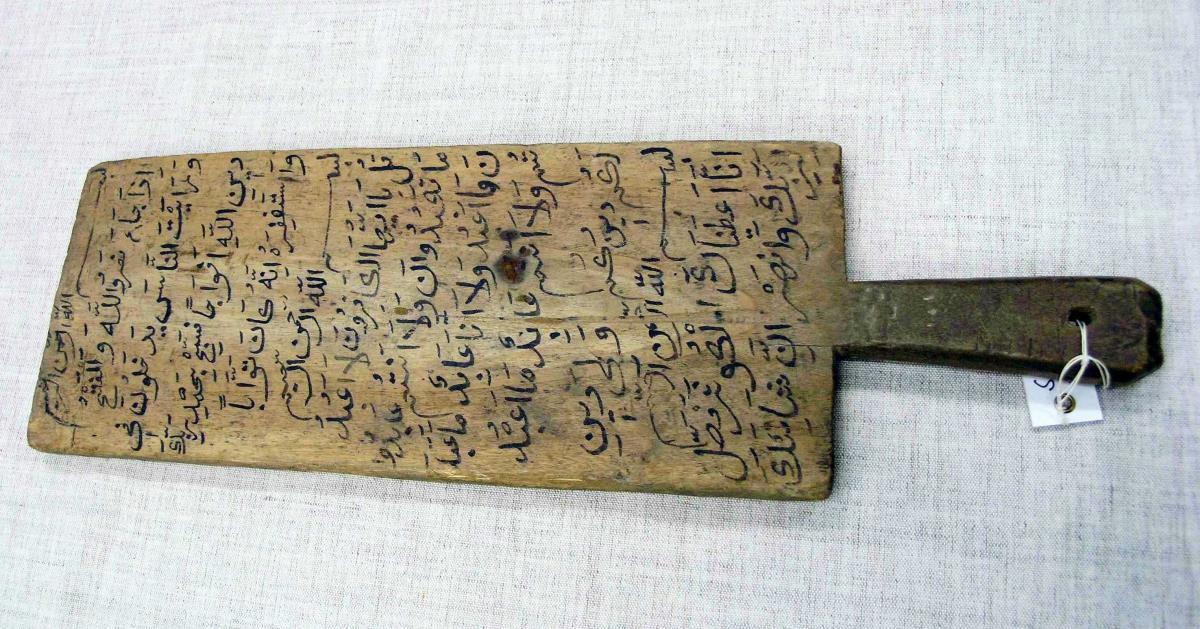 بسم الله الرحمن الرحيم
اذا جاء نصر الله و الفتح
و رايت الناس يدخلون في
دين الله افواجا فسبح بحمد ربك
واستغفره انه كان توابا
بسم الله الرحمن الرحيم
قل يا ايها الكفرون لا اعبد
ما تعبدون ولا انتم عابدو
ن ما اعبد ولا انا عابد ما عبد
تم ولا انتم عابدون ما اعبد
لكم دينكم ولي دين
بسم الله الرحمن الرحيم
انا اعطيناك الكوثر فصل
لربك وانحر ان شانئك